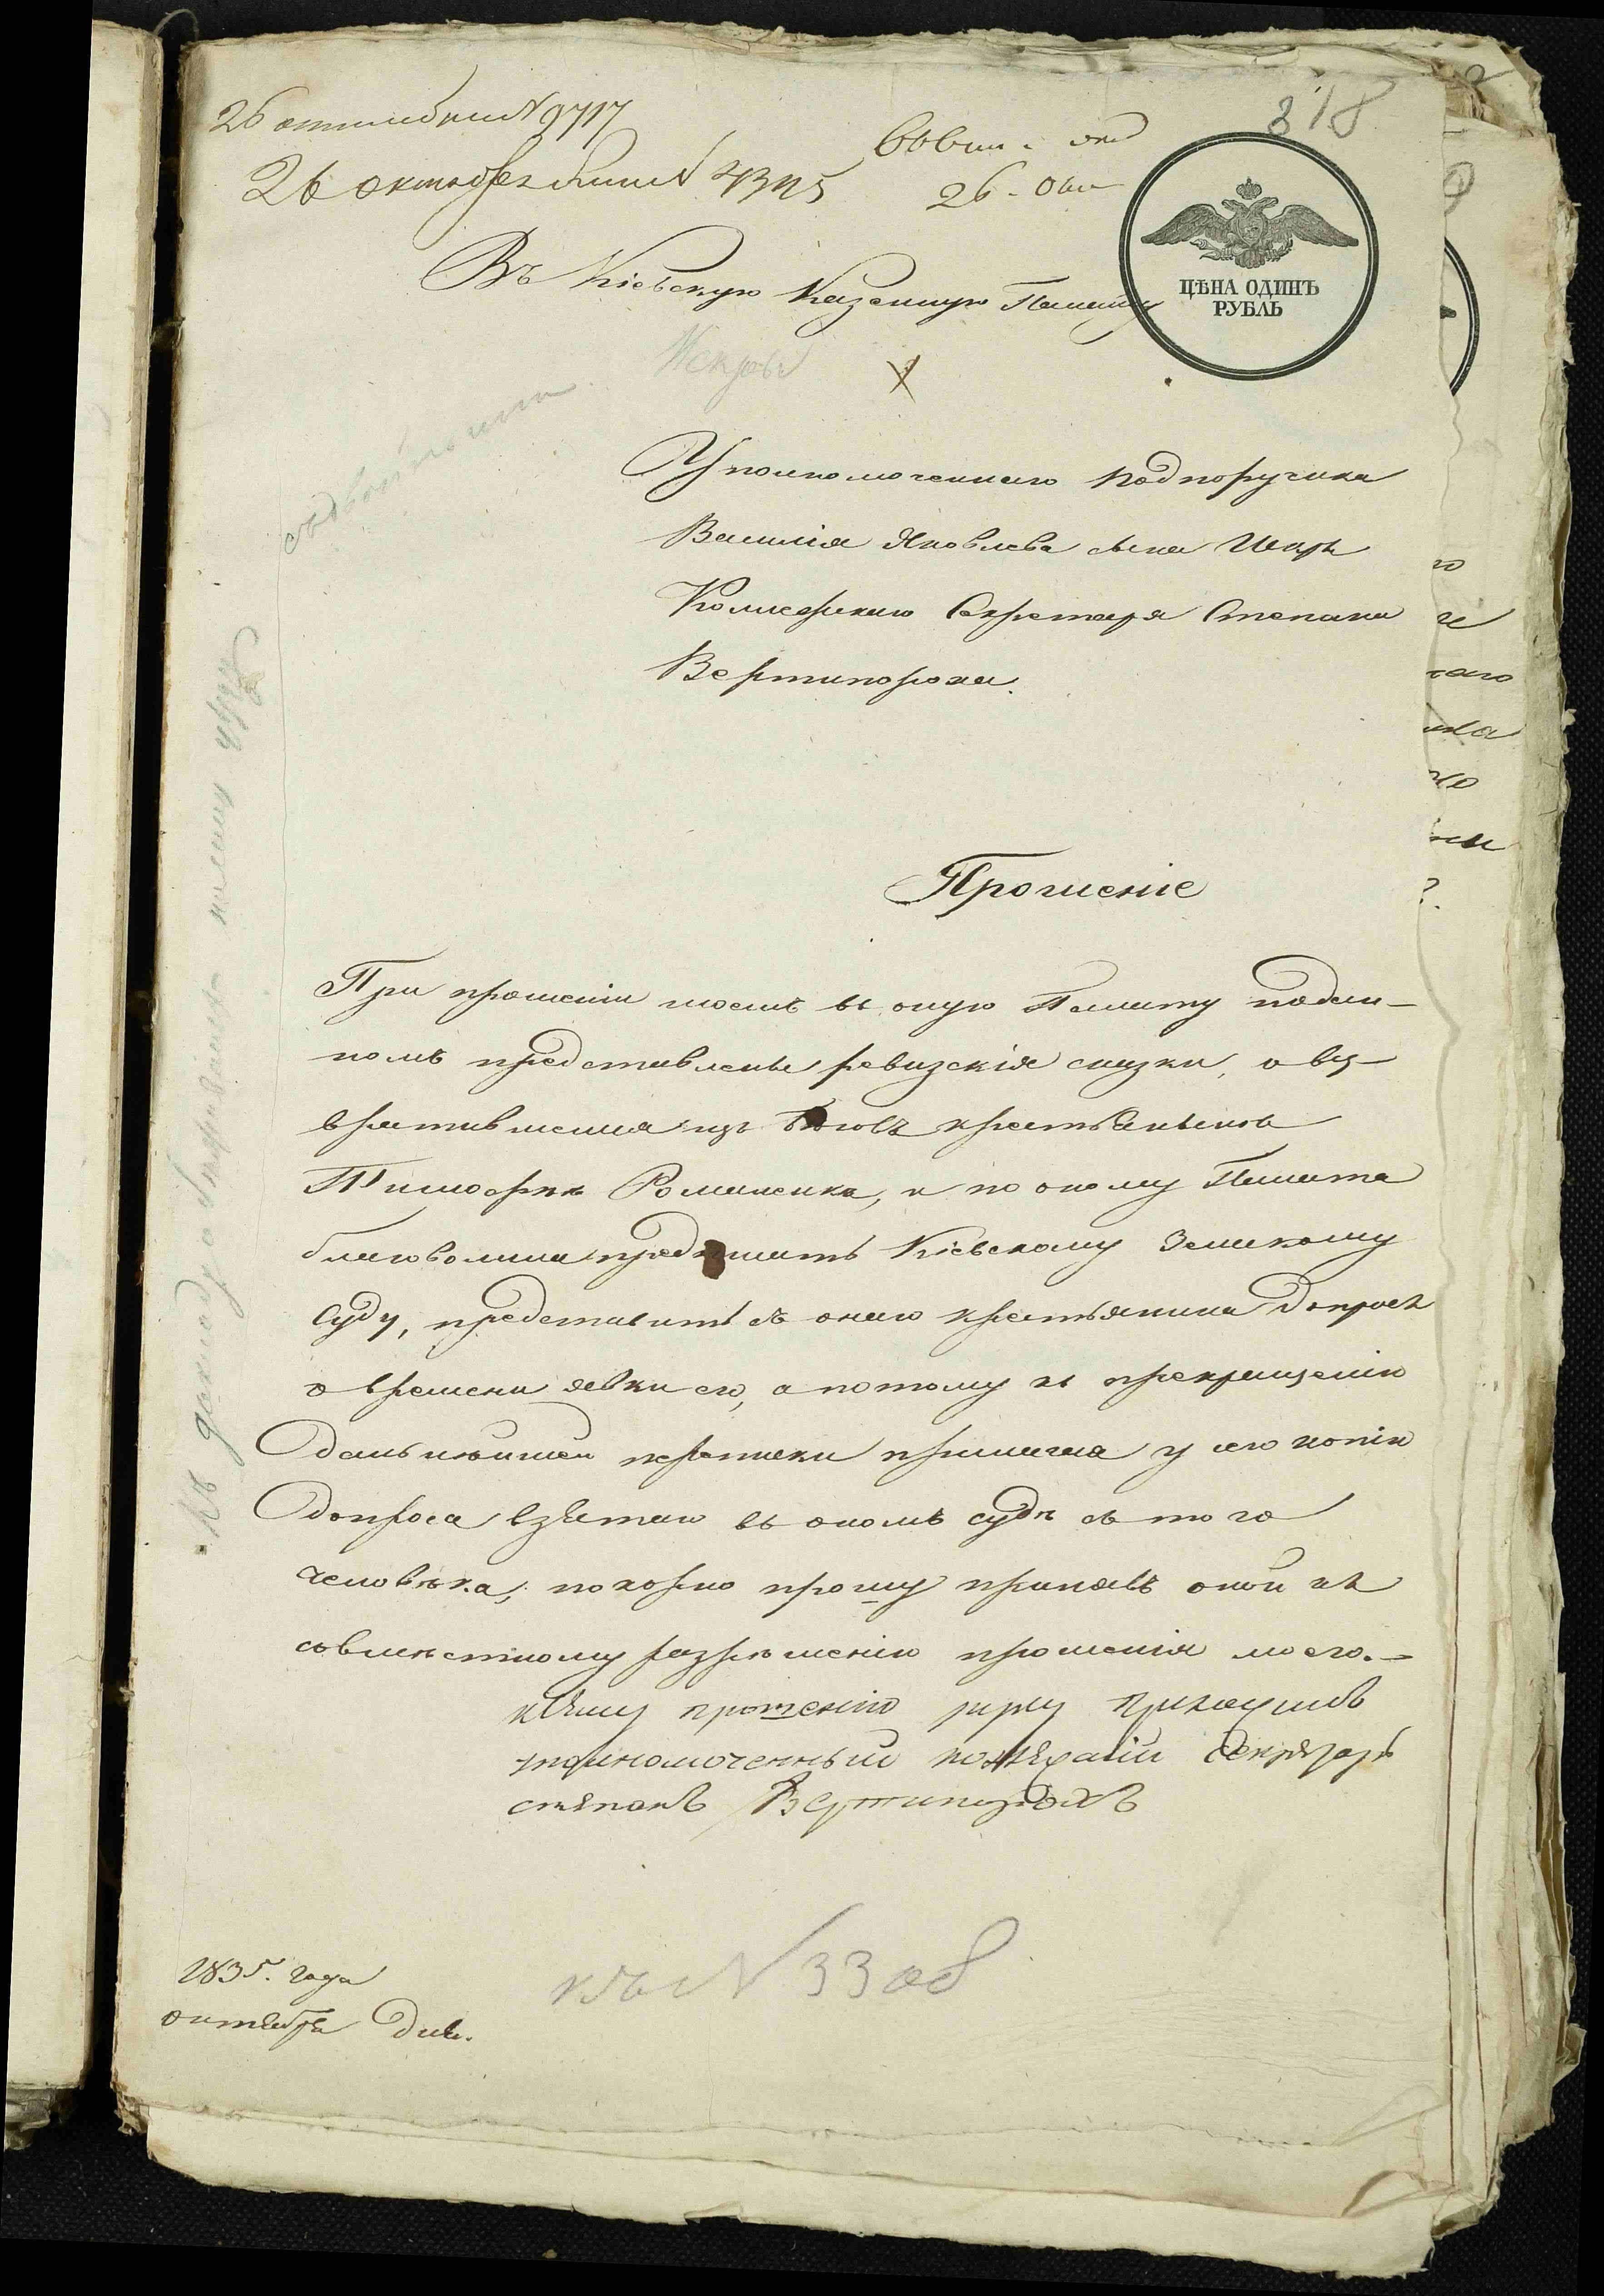 318
26 октября N 9717
26 октября N
26
Въ Кіевскую Казенную Палату
ЦѢНА ОДИНЪ
РУБЛЬ
Искры
Уполномоченнаго Подпоручика
Василія Яковлева сына Искры
Коллежскаго Секретаря Степана
Вертипороха.
Прошеніе
При прошеніи моемъ въ оную Палату подан-
номъ представлены ревизскія сказки, о воз-
вратившемся изъ бѣговъ крестьянинѣ
Тимофѣѣ Романенкѣ, и по оному Палата
благоволила предписать Кіевскому Земскому
Суду, представить съ онаго крестьянина допросъ
о времени явки его, а потому къ прекращенію
дальнѣйшей переписки прилагая у сего копію
допроса взятаго въ ономъ судѣ съ того
человѣка, покорно прошу принявъ оной къ
совмѣстному разрѣшенію прошенія моего.-
прошенію руку приложилъ
уполномоченный секретарь
степанъ Вертипорохъ
1835. года
октября дня.
къ N 3308
Къ докладу о